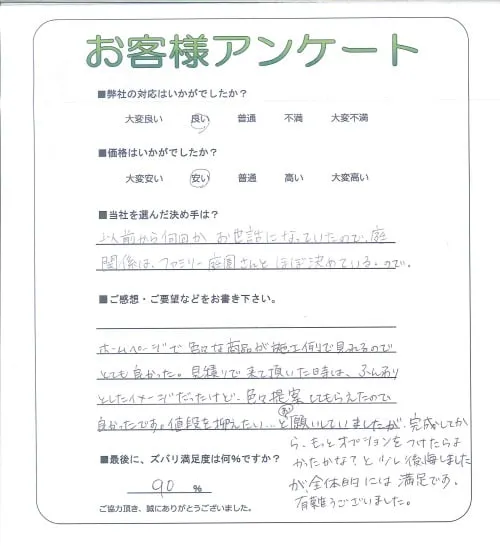 お客様アンケート
■弊社の対応はいかがでしたか?
大変良い 良い 普通 不満 大変不満
■価格はいかがでしたか?
大変安い 安い 普通 高い 大変高い
■当社を選んだ決め手は?
以前から何回か お世話になっていたので、庭
関係は、ファミリー庭園さんと ほぼ決めている。ので。
■ご感想・ご要望などをお書き下さい。
ホームページで色々な商品が施工例で見れるので
とても良かった。見積りで来て頂いた時は、ふんわり
としたイメージだったけど、色々提案してもらえたので
良かったです。値段を抑えたい…とお願いしていましたが、完成してか
ら、もっとオプションをつけたらよ
かったかな?と少し後悔しました
が、全体的には満足です。
有難うございました。
■最後に、ズバリ満足度は何%ですか?
90 %
ご協力頂き、誠にありがとうございました。